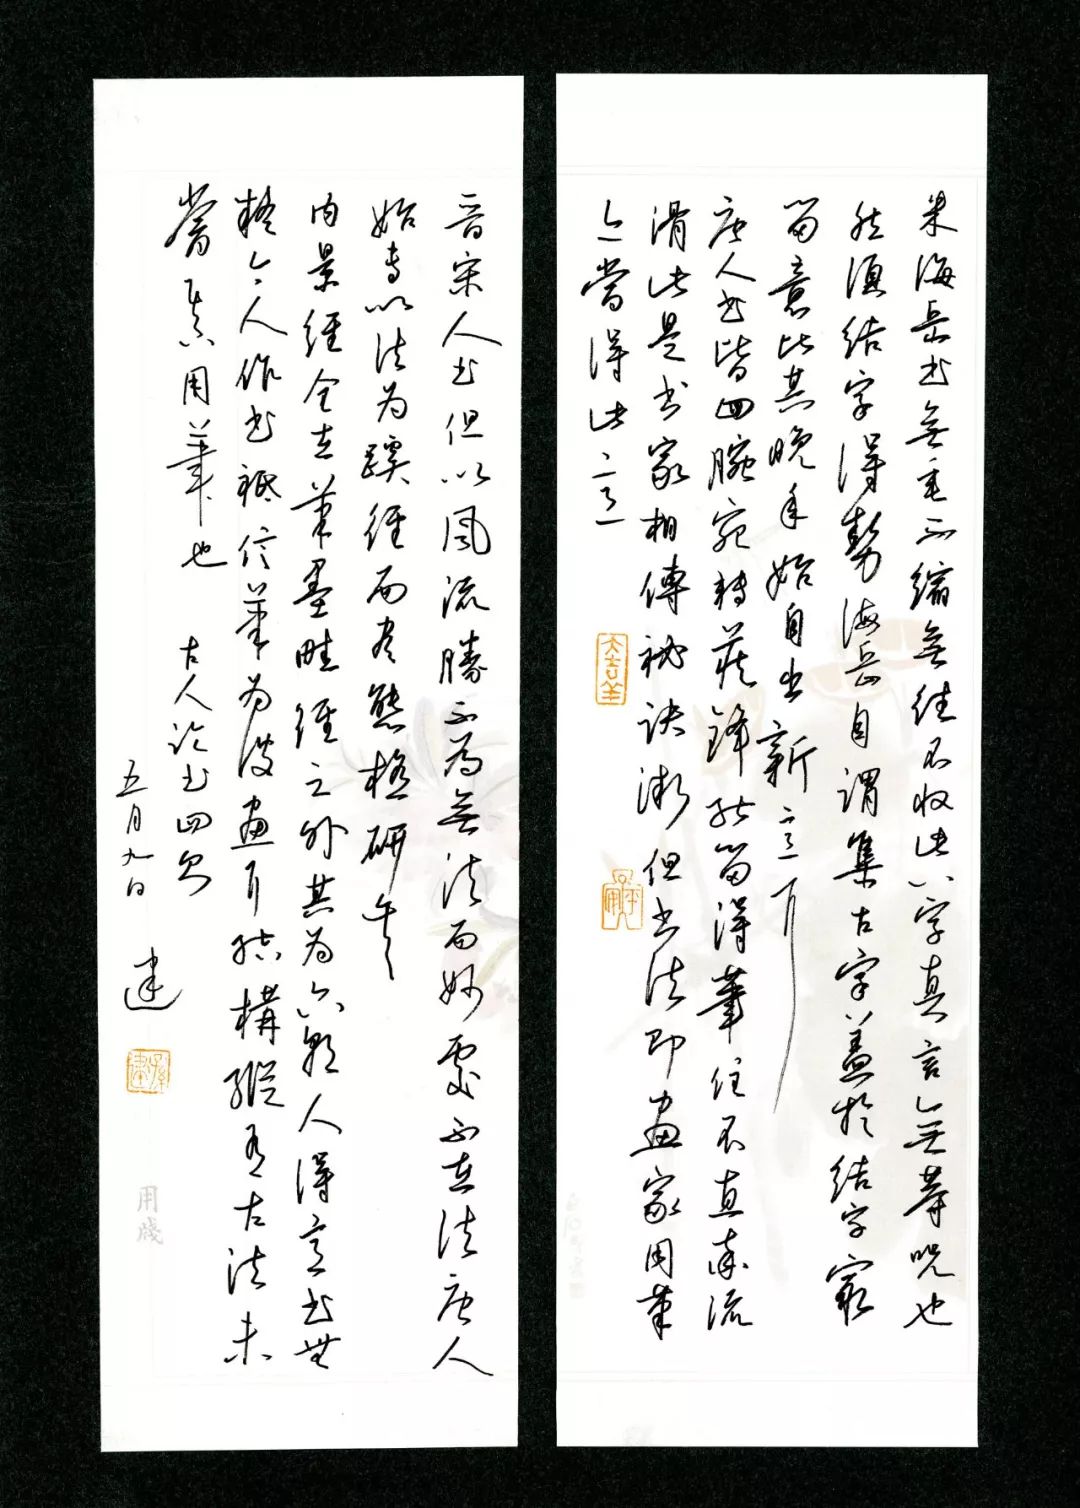 米海岳书无垂不缩无往不收此八字真言无等呪也
然须结字得势海岳自谓集古字盖於结字最
留意比其晚年始自出新意耳
唐人书皆回腕宛转藏锋能留得笔住不直率流
滑此是书家相傳秘诀微但书法即画家用笔
亦當得此意
大吉羊
晋宋人书但以風流勝不為无法而妙處不在法唐人
始专以法为蹊径而尽態極研矣
内景经全在筆墨畦径之外其为六朝人得意书無
疑今人作书祗信筆为波画耳结構縱有古法未
嘗真用筆也
古人论书四则
五月九日 建
用牋